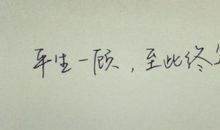 平生一顾，至此终